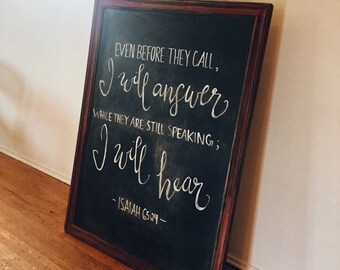 EVEN BEFORE THEY CALL,
I will answer
WHILE THEY ARE STILL SPEAKING;
I will hear
- ISAIAH 65:24 -